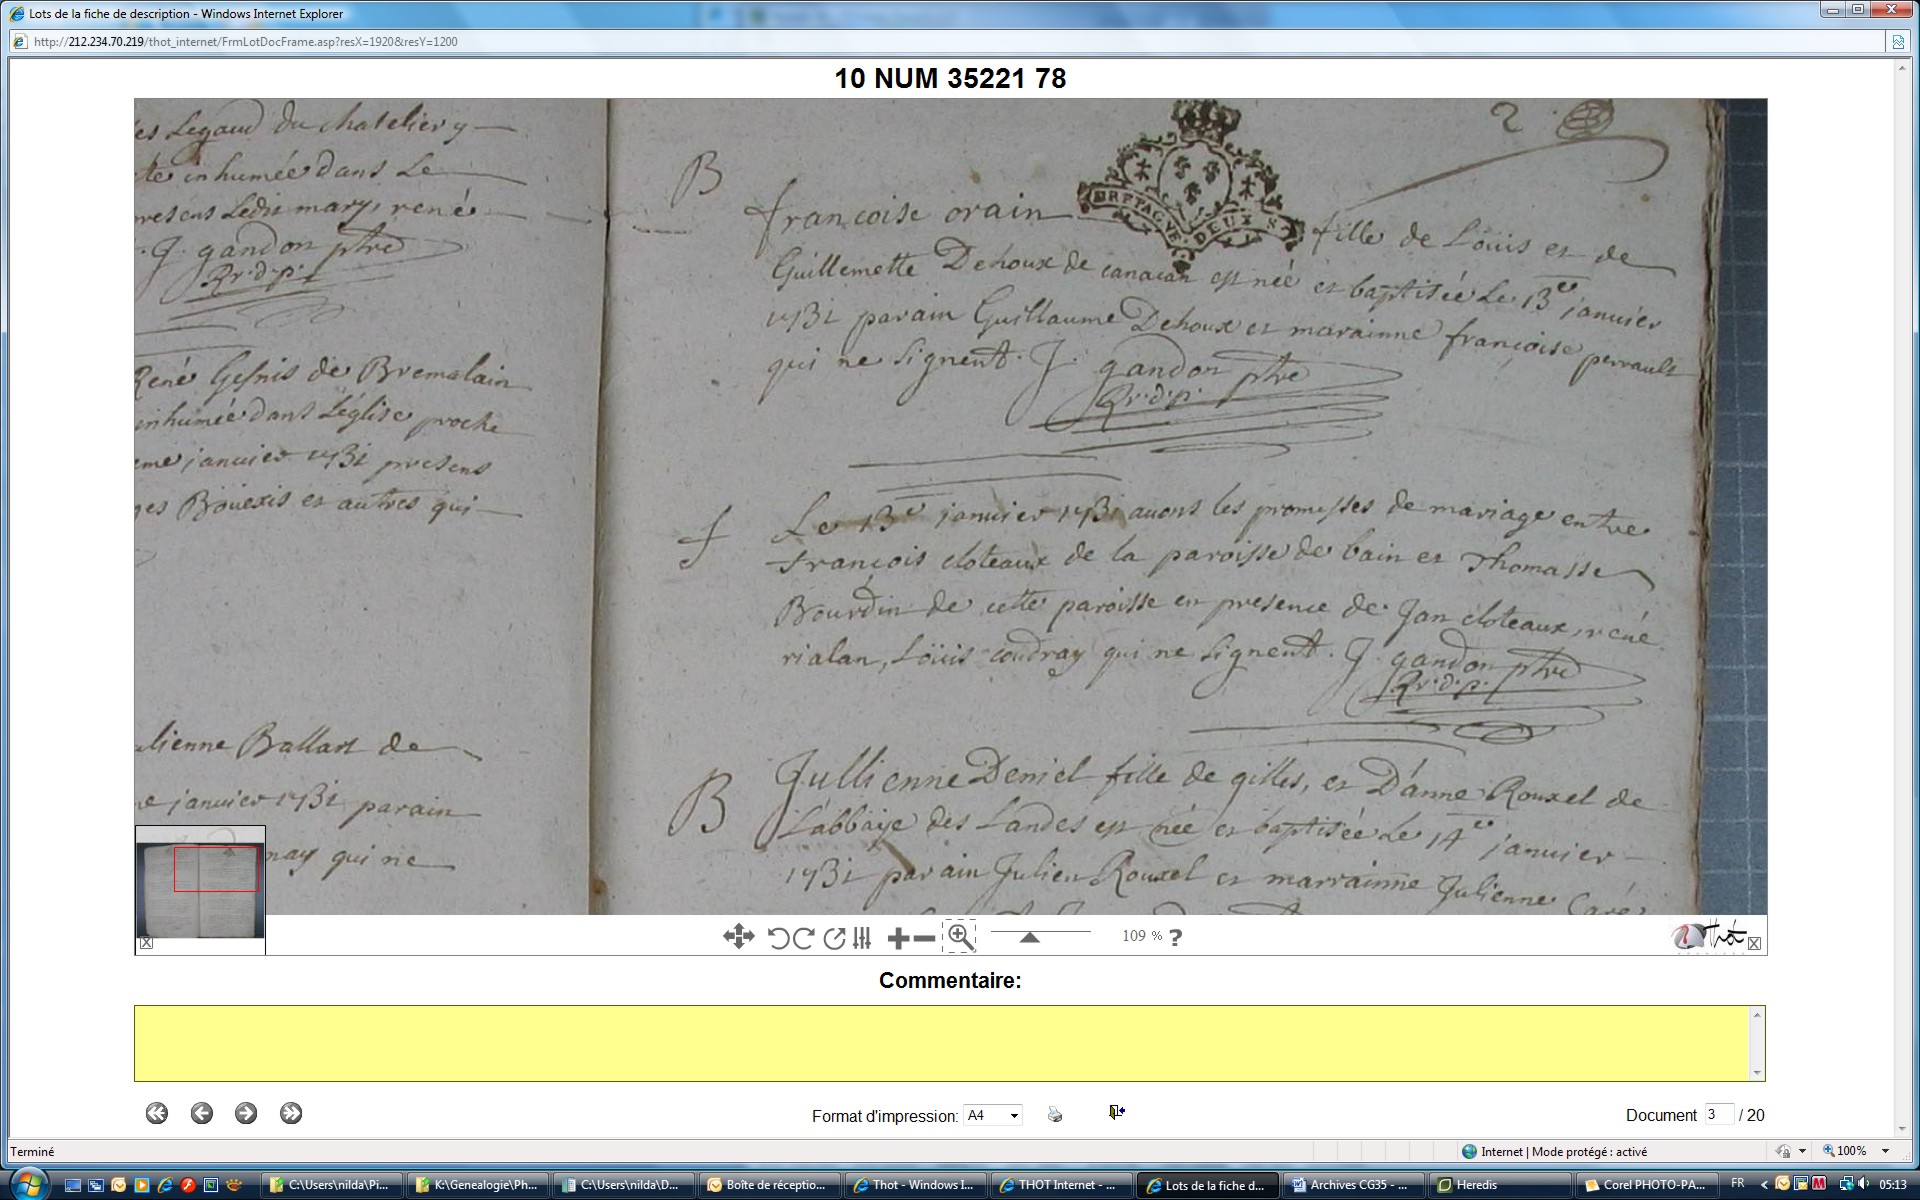 Lots de la fiche de description - Windows Internet Explorer
http://212.234.70.219/thot_internet/FrmLotDocFrame.asp?resX=1920&resY=1200
10 NUM 35221 78
es Legaud du chatelier y
te inhumée dans Le
presens Ledit mary, rené
J. gandon ptre
Rr. d. p.
René Gesnis de Bremelain
inhumée dans L'église proche
eme januier 1731 presens
ges Bouexis et autres qui
ulienne Ballart de
ne januier 1731 parain
nay qui ne
2
B
francoise orain
BRETAGNE. DEUX S.
fille de Loüis et de
Guillemette Dehoux de canacan est née et baptisée Le 13e januier
1731 parain Guillaume Dehoux et marainne françoise perrault
qui ne signent. J. gandon ptre
Rr. d. p.
f
Le 13e januier 1731 auons les promesses de mariage entre
francois cloteaux de la paroisse de bain et Thomasse
Bourdin de cette paroisse en presence de Jan cloteaux, rené
rialan, Loüis coudray qui ne signent. J. gandon ptre
Rr. d. p.
B
Jullienne Deniel fille de gilles, et D'anne Rouxel de
L'abbaye des Landes est née et baptisée Le 14e januier
1731 parain Julien Rouxel et marrainne Julienne Caré
109 % ?
Thot
Commentaire:
Format d'impression: A4
Document 3 / 20
Terminé
Internet | Mode protégé : activé
100%
C:\Users\nilda\Pi...
K:\Genealogie\Ph...
C:\Users\nilda\D...
Boîte de réceptio...
Thot - Windows I...
THOT Internet - ...
Lots de la fiche d...
Archives CG35 - ...
Heredis
Corel PHOTO-PA...
FR
05:13